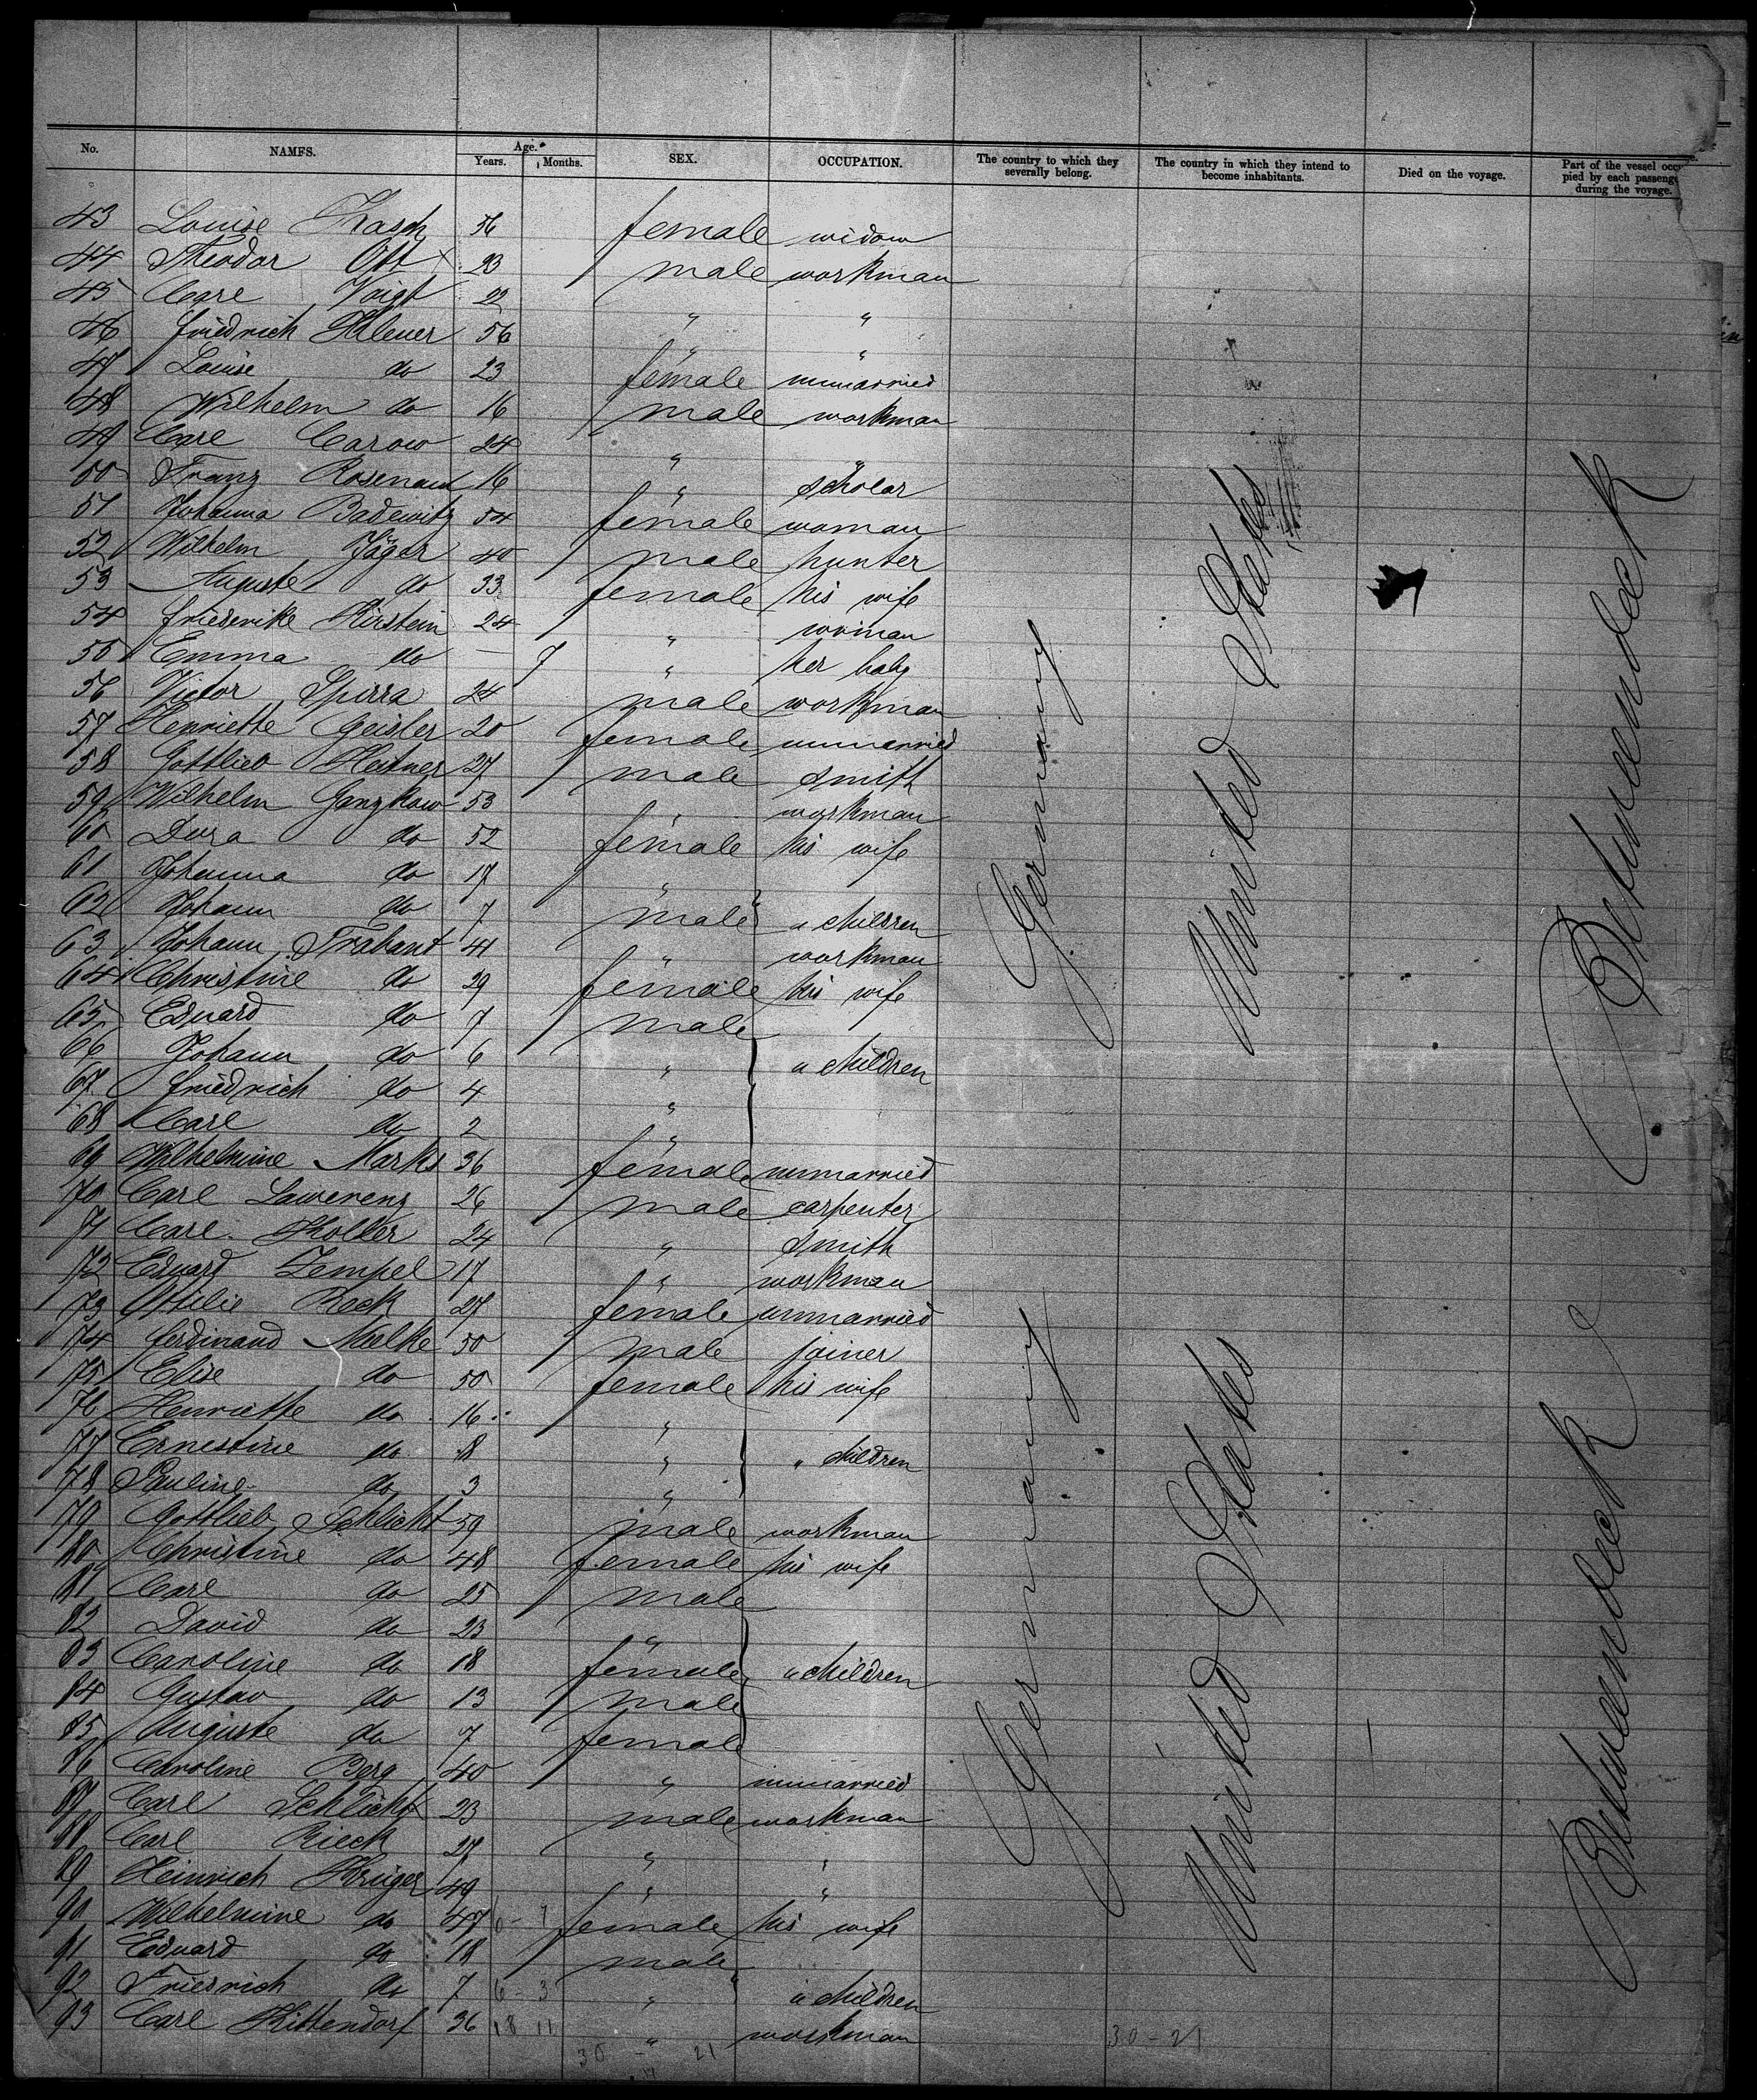 No. NAMES. Age. Years. Months. SEX. OCCUPATION. The country to which they severally belong. The country in which they intend to become inhabitants. Died on the voyage. Part of the vessel occupied by each passenger during the voyage.
43 Louise 56 female widow
44 Theodor Ott 23 male workman
45 Carl Voigt 22 " "
46 Friedrich 56 " "
47 Louise do 23 female unmarried
48 Wilhelm do 16 male workman
49 Carl Carow 24 " "
50 Franz Rosenau 16 " scholar
51 Johanna Badewitz 54 female woman
52 Wilhelm Jäger 40 male hunter
53 Auguste do 33 female his wife
54 Friederike Kirstein 24 " woman
55 Emma do — 7 " her baby
56 Victor Spirra 24 male workman
57 Henriette Geisler 20 female unmarried
58 Gottlieb 27 male smith
59 Wilhelm Ganzkow 53 " workman
60 Dora do 52 female his wife
61 Johanna do 17 "
62 Johann do 7 male " children
63 Johann Trabant 41 " workman
64 Christine do 29 female his wife
65 Eduard do 7 male
66 Johann do 6 " " children
67 Friedrich do 4 "
68 Carl do 2 "
69 Wilhelmine Marks 36 female unmarried
70 Carl Lawerenz 26 male carpenter
71 Carl Koller 24 " smith
72 Eduard Zempel 17 " workman
73 Ottilie Rock 27 female unmarried
74 Ferdinand Mielke 50 male joiner
75 Elise do 50 female his wife
76 Henriette do 16 "
77 Ernestine do 8 " " children
78 Pauline do 3 "
79 Gottlieb Schlicht 59 male workman
80 Christine do 48 female his wife
81 Carl do 25 male
82 David do 23 "
83 Caroline do 18 female " children
84 Gustav do 13 male
85 Auguste do 7 female
86 Caroline Berg 40 " unmarried
87 Carl Schlicht 23 male workman
88 Carl Rieck 27 " "
89 Heinrich Krüger 49 " "
90 Wilhelmine do 47 female his wife
91 Eduard do 18 male
92 Friedrich do 7 6 - 3 " " children
93 Carl Kittendorf 36 18 11 " workman
30 - 21 30 - 21
Germany
United States
Betweendeck
Germany
United States
Betweendeck